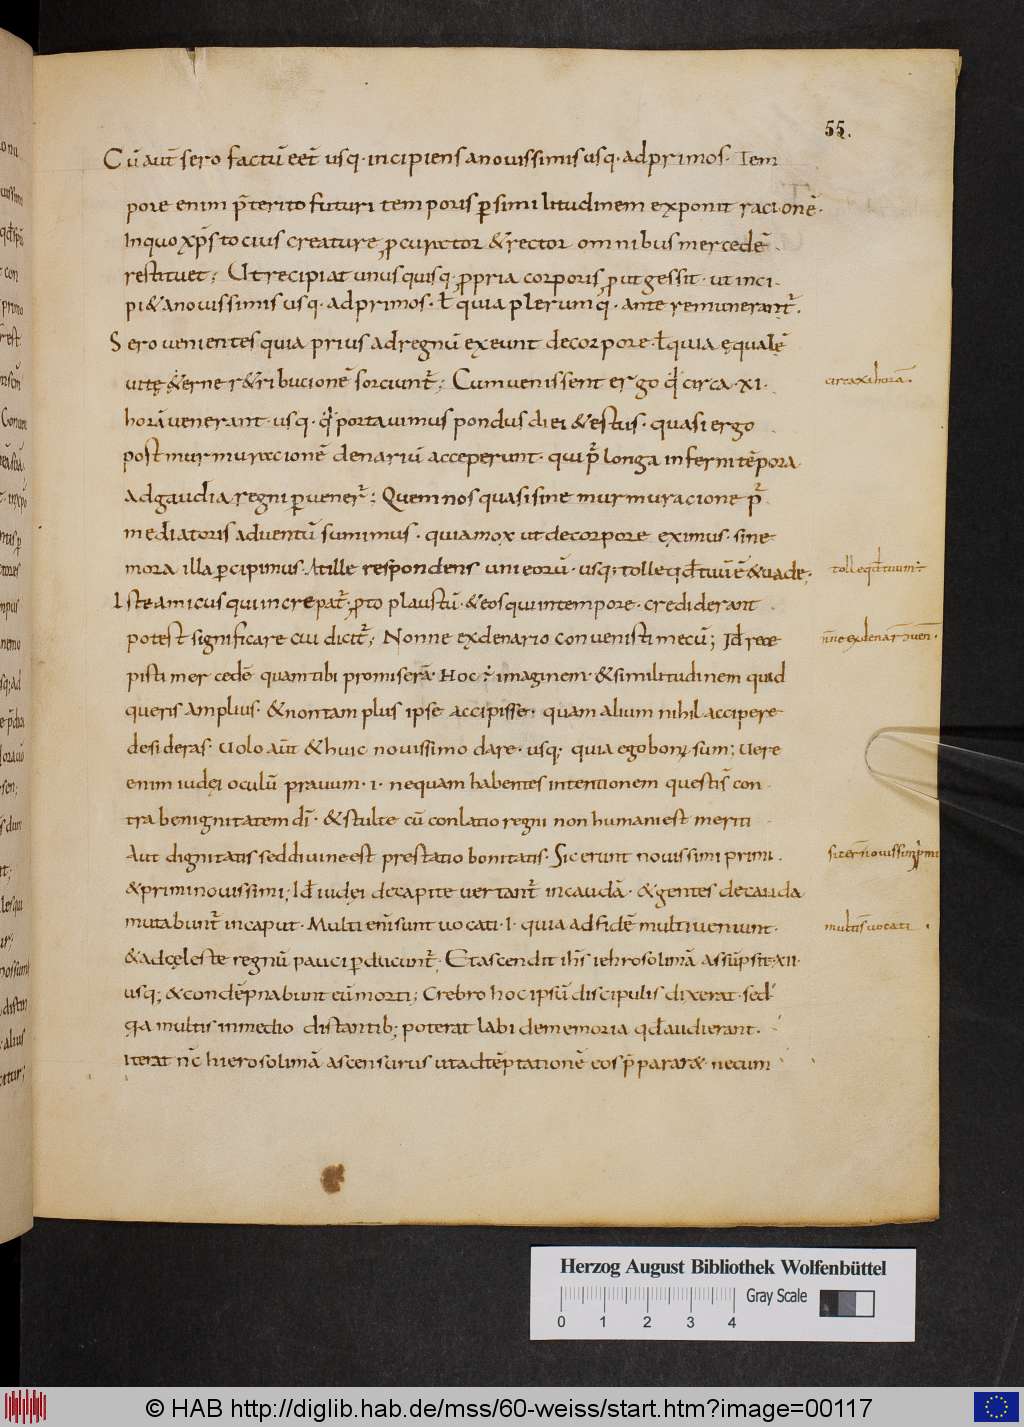 55.
Cū aut̄ sero factū eēt usq· incipiens a nouissimis usq· ad primos· Tem
pore enim p̄terito futuri temporis ꝑ similitudinem exponit racionē·
In quo xp̄s tocius creature ꝓcurator & rector omnibus mercedē
restituet; Ut recipiat unusquisq· ꝓpria corporis ꝓut gessit· ut inci·
pi& a nouissimis usq· ad primos· ł quia plerumq· ante remunerant̄·
Sero uenientes quia prius ad regnū exeunt de corpore· ł quia ęqualē
uitę &erne r&ribucionē sorciunt̄; Cum uenissent ergo q̇ circa· XI·
circa xi horā·
horā uenerant· usq· q̇ portauimus pondus diei & estus· quasi ergo
post murmuracionē denariū acceperunt· qui p̄ longa inferni tēpora
ad gaudia regni ꝑuener̄; Quem nos quasi sine murmuracione p̄
mediatoris aduentū sumimus· quia mox ut de corpore eximus· sine
mora illa ꝑcipimus· At ille respondens uni eorū· usq; tolle qđ tuū ē & uade·
tolle qđ tuum ·
Iste amicus qui increpat̄· ꝓ to plaustū· & eos qui in tempore· crediderant
potest significare cui dicit̄; Nonne ex denario conuenisti mecū; Id rece
n̄ne ex denar ɔuen·
pisti mercedē quam tibi promiserā· Hoc ÷ imaginem· & similitudinem quid
queris amplius· & non tam plus ipse accipisse· quam alium nihil accipere
desideras· Uolo aut̄ & huic nouissimo dare· usq; quia ego bonus sum; Uere
enim iudei oculū prauum· i· nequam habentes intentionem questis con
tra benignitatem dī· & stulte cū conlatio regni non humani est meriti
Aut dignitatis sed diuine est prestatio bonitatis· Sic erunt nouissimi primi·
sic er̄ nouissim p̄mi
& primi nouissimi; Id iudei de capite uertant̄ in caudā· & gentes de cauda
mutabunt̄ in caput· Multi enī sunt uocati· I· quia ad fidē multi ueniunt·
multi s̄ uocati ·
& ad cęleste regnū pauci ꝑducunt̄· Et ascendit ih̄s iehrosolimā assūpsit· XII·
usq; & condēpnabunt eū morti; Crebro hoc ipsū discipulis dixerat· sed
qa multis in medio distantib; poterat labi de memoria qđ audierant·
iterat nc̄ hierosolimā ascensurus ut ad tēptationē eos p̄parar& necum
Herzog August Bibliothek Wolfenbüttel
Gray Scale
0 1 2 3 4
© HAB http://diglib.hab.de/mss/60-weiss/start.htm?image=00117